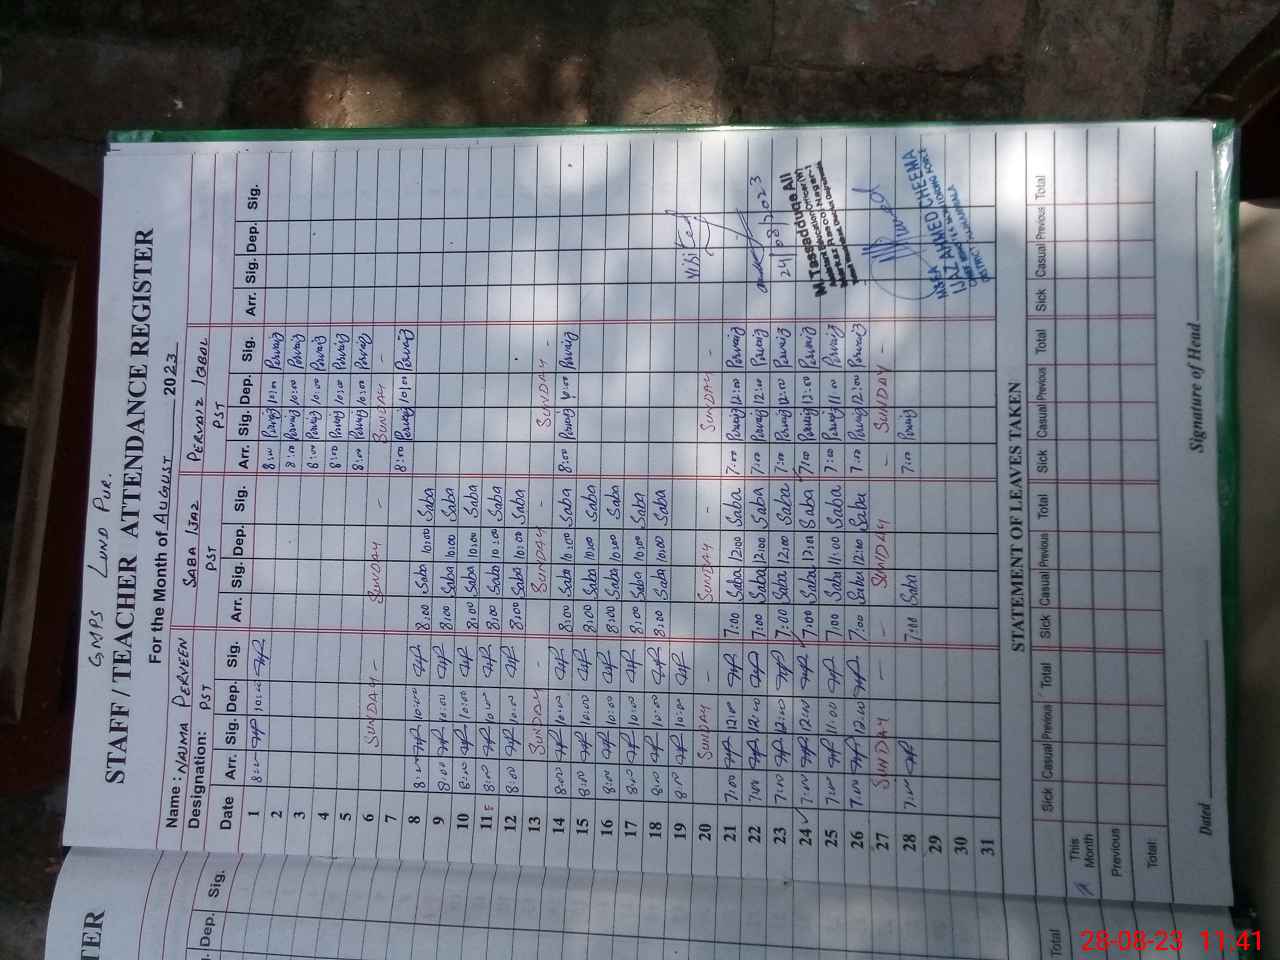 GMPS LUND PUR.
STAFF / TEACHER ATTENDANCE REGISTER
For the Month of AUGUST 2023
Name: NAJMA PERVEEN SABA IJAZ PERVAIZ IQBOL
Designation: PST PST PST
Date Arr. Sig. Dep. Sig. Arr. Sig. Dep. Sig. Arr. Sig. Dep. Sig. Arr. Sig. Dep. Sig.
1 8:00 10:00
2 8:00 Pervaiz 10:00 Pervaiz
3 8:00 Pervaiz 10:00 Pervaiz
4 8:00 Pervaiz 10:00 Pervaiz
5 8:00 Pervaiz 10:00 Pervaiz
6 SUNDAY - SUNDAY - 8:00 Pervaiz 10:00 Pervaiz
7 SUNDAY -
8 8:00 10:00 8:00 Saba 10:00 Saba 8:00 Pervaiz 10:00 Pervaiz
9 8:00 10:00 8:00 Saba 10:00 Saba
10 8:00 10:00 8:00 Saba 10:00 Saba
11 8:00 10:00 8:00 Saba 10:00 Saba
12 8:00 10:00 8:00 Saba 10:00 Saba
13 SUNDAY - SUNDAY - SUNDAY -
14 8:00 10:00 8:00 Saba 10:00 Saba 8:00 Pervaiz Pervaiz
15 8:00 10:00 8:00 Saba 10:00 Saba
16 8:00 10:00 8:00 Saba 10:00 Saba
17 8:00 10:00 8:00 Saba 10:00 Saba
18 8:00 10:00 8:00 Saba 10:00 Saba
19 8:00 10:00 Visited
20 SUNDAY - SUNDAY - SUNDAY -
21 7:00 12:00 7:00 Saba 12:00 Saba 7:00 Pervaiz 12:00 Pervaiz
22 7:00 12:00 7:00 Saba 12:00 Saba 7:00 Pervaiz 12:00 Pervaiz
23 7:00 12:00 7:00 Saba 12:00 Saba 7:00 Pervaiz 12:00 Pervaiz 24/08/2023
24 7:00 12:00 7:00 Saba 12:00 Saba 7:00 Pervaiz 12:00 Pervaiz M. Tassadduqe Ali
25 7:00 11:00 7:00 Saba 11:00 Saba 7:00 Pervaiz 11:00 Pervaiz
26 7:00 12:00 7:00 Saba 12:00 Saba 7:00 Pervaiz 12:00 Pervaiz
27 SUNDAY - - SUNDAY - SUNDAY -
28 7:00 7:00 Saba 7:00 Pervaiz
29 M&EA
30 IJAZ AHMED CHEEMA
31
STATEMENT OF LEAVES TAKEN
Sick Casual Previous Total Sick Casual Previous Total Sick Casual Previous Total Sick Casual Previous Total
This Month
Previous
Total:
Dated Signature of Head
TER
Dep. Sig.
Total
28-08-23 11:41